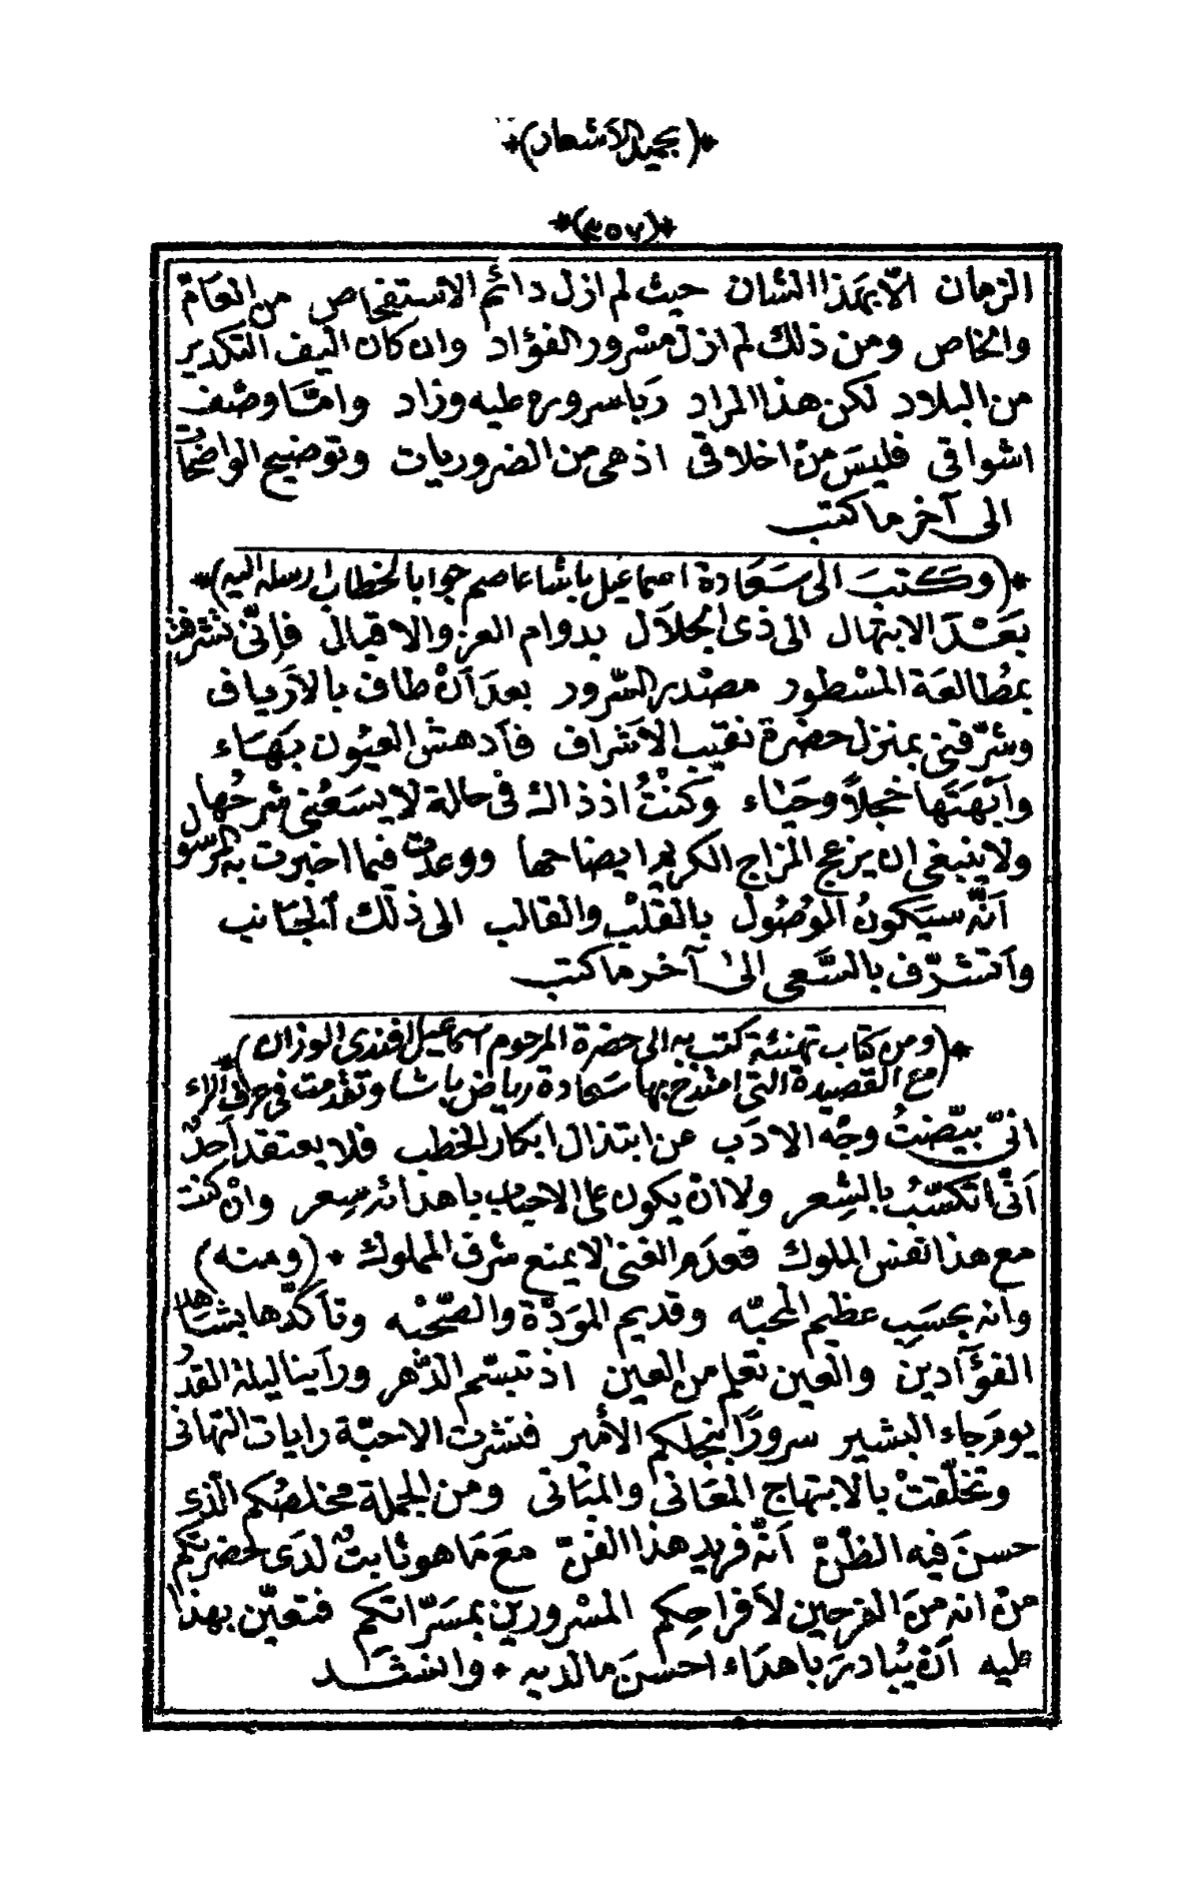 *(بجميل الاشعار)*
*(٣٥٧)*
الزمان الّا بهذا الشان حيث لم ازل دائم الاستفحاص من العَامّ
والخاص ومن ذلك لم ازل مسْرور الفؤاد وان كان اليف التكدير
من البلاد لكن هذا المراد رَبا سروره عليه وزاد وامّا وصْف
اشواقى فليسَ منْ اخلاقى اذ هى من الضروريات وتوضيح الواضحَاتُ
الى آخر ما كتب
*(وكتبَ الى سَعَادة اسماعيل باشا عاصم جوابا لخطاب ارسله اليه)*
بَعْدَ الابتهال الى ذى الجلَال بدوام العز والاقبال فإنّى تشرفت
بمُطالعَة المسْطور مصْدر السّرور بعدَ انْ طاف بالارياف
وشرّفنى بمنزل حضرة نقيب الاشراف فأدهش العيُون بَهَاء
وابْهَتَها خجلاً وحَيَاء وكنْتُ اذ ذاك فى حالة لا يسَعُنى شرحُها
ولا ينبغى ان يزعج المزاج الكريم ايضاحها ووعدت فيما اخبرت به المرسول
انّه سيَكونُ الوُصُول بالقلْب والقالب الى ذلك الجَانب
واتشرّف بالسَّعى الى آخر ما كتب
*(ومن كتاب تهنئة كتب به الى حضرة المرحوم اسماعيل افندى الوزان
مع القصيدة التى امتدح بها سَعَادة رياض باشا وتقدمت فى حرف الراء)*
انّى بيّضتُ وجْه الادَب عن ابتذال ابكار الخطب فلا يعتقد أحدٌ
أنّى اتكسّبُ بالشِعر ولا انْ يكون على الاحباب باهدائه سِعر وانْ كنت
مع هذا نفس الملوك فعدَم الغنى لا يمنع شرف المملوك * (ومنه)
وانه بحسَبِ عظيم المحبّه وقديم الموَدّة والصّحْبه وتأكّدها بشَاهد
الفؤآدين والعين تعلم من العين اذ تبسّم الدّهر ورأينا ليلة القدْر
يومَ جاء البشير سرورًا بنجلكم الأمير فنشرت الاحبّة رايات التهانى
وتخلّقتْ بالابتهاج المعَانى والمبَانى ومن الجملة مخلصْكم الّذى
حسنَ فيه الظنّ انّه فريد هذا الفنّ معَ مَا هو ثابتٌ لدَى حضرتكم
منْ انه منَ الفرحين لأفراحِكم المسْرورين بمسَرّاتكم فتعيّن بهذا
عليه أنْ يُبادرَ باهدَاء احسَن ما لديه * وانشَد